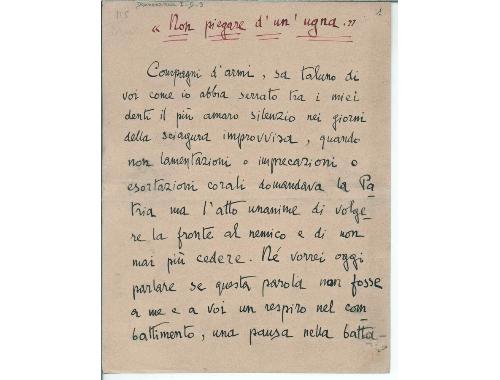 « Non piegare d'un'ugna. »
1
Compagni d'armi, sa taluno di
voi come io abbia serrato tra i miei
denti il più amaro silenzio nei giorni
della sciagura improvvisa, quando
non lamentazioni o imprecazioni o
esortazioni corali domandava la Pa-
tria ma l'atto unanime di volge-
re la fronte al nemico e di non
mai più cedere. Né vorrei oggi
parlare se questa parola non fosse
a me e a voi un respiro nel com-
battimento, una pausa nella batta-